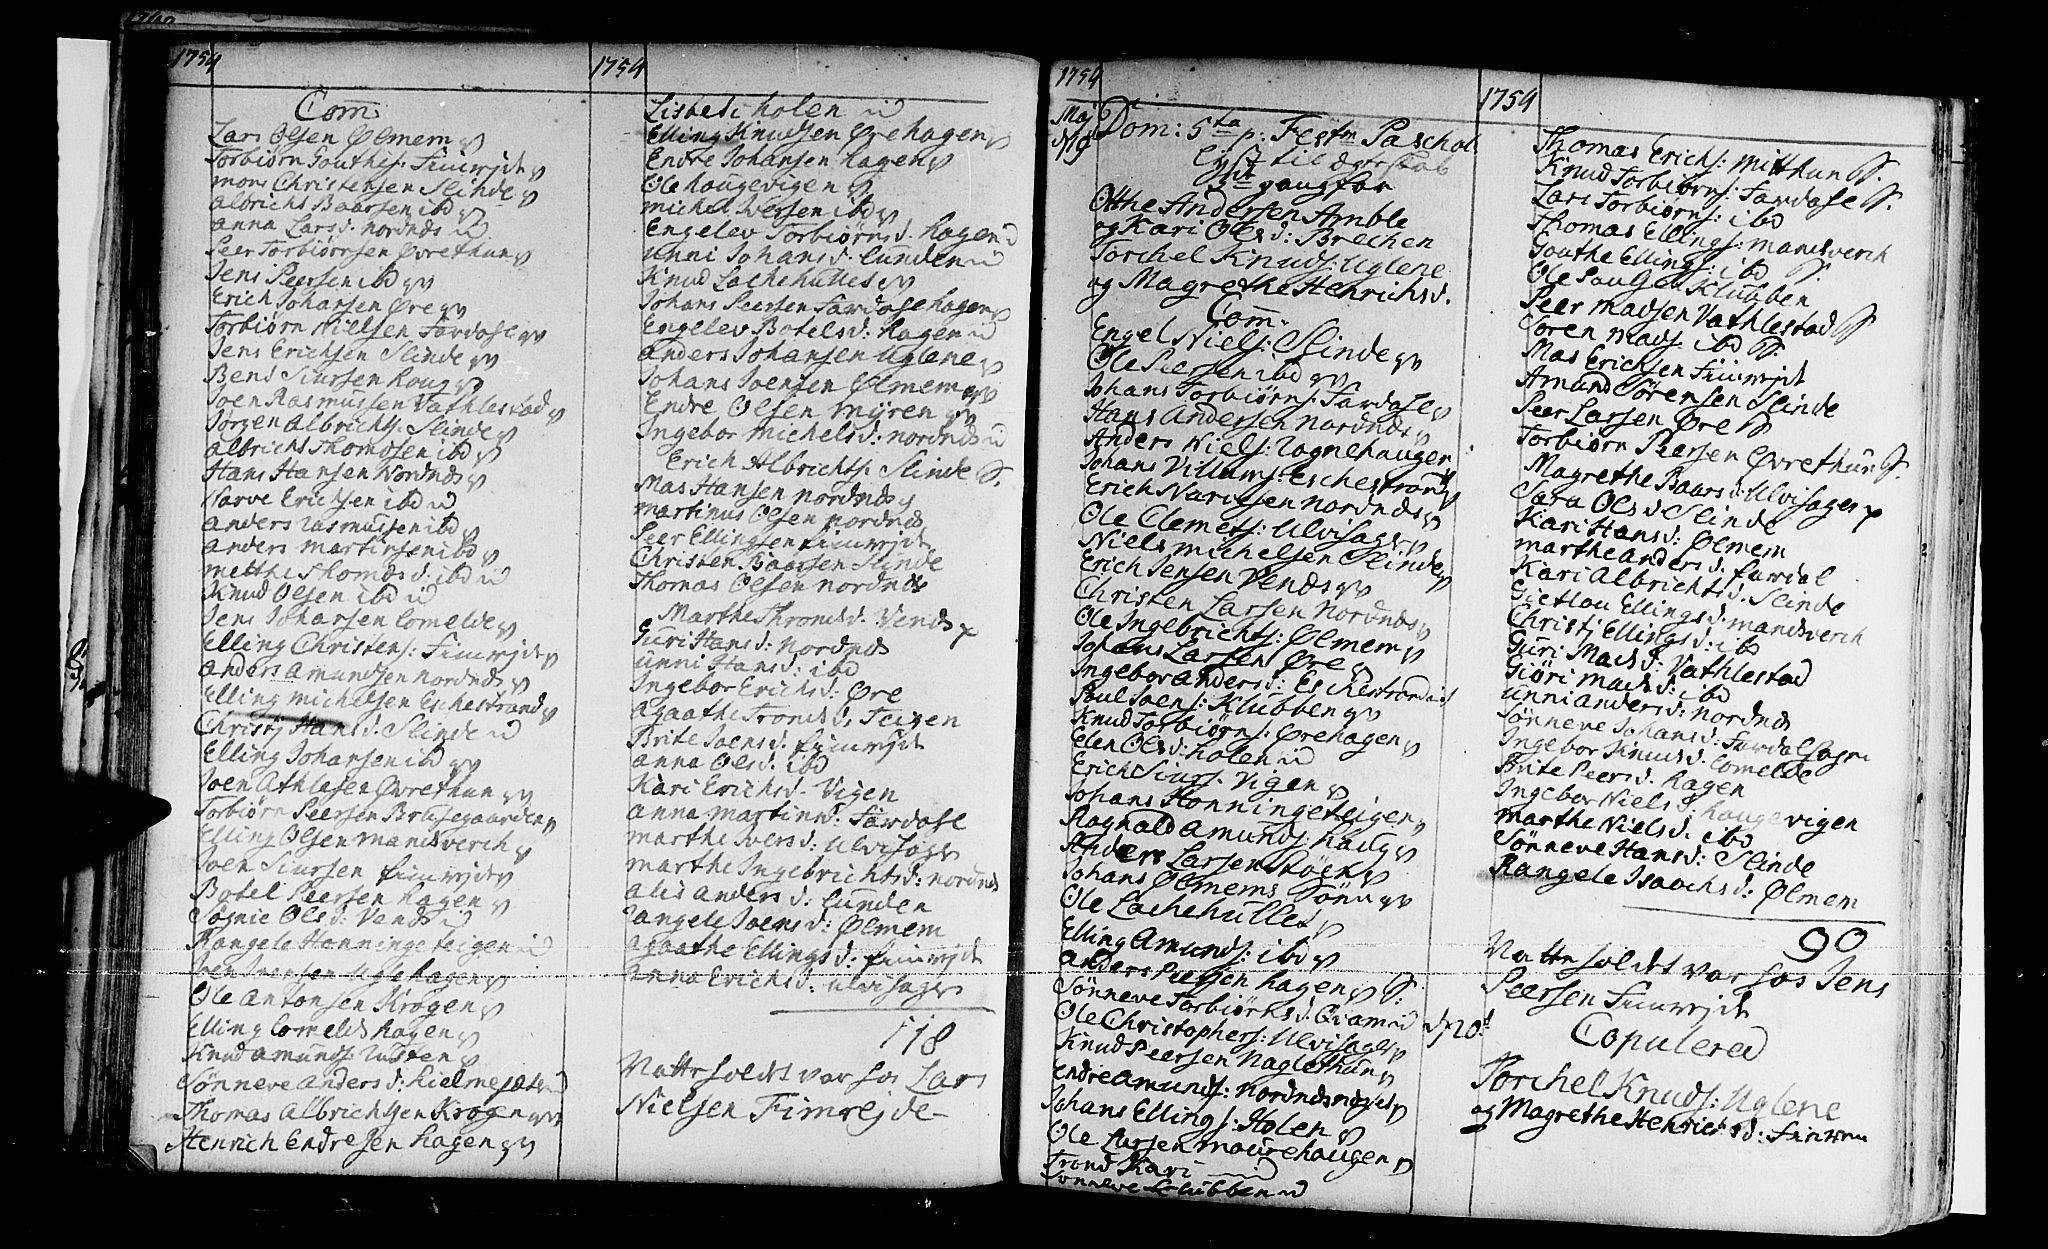 1754
Com
Lars Olsen Ølmem
Torbiørn Gouthes: Fimrejte
Mons Christensen Slinde
Albricht Baarsen ibd
Anna Lars d. Nordnæs
Peer Torbiørsen Øvrethun
Jens Peersen ibd
Erich Johansen Øre
Torbiørn Nielsen Fardase
Jens Erichsen Slinde
Bens Siursen Houg
Joen Rasmussen Vathlestad
Jørgen Albrichts: Slinde
Albricht Thomæsen ibd
Hans Hansen Nordnæs
Narve Erichsen ibd
Anders Rasmussen ibd
Anders Martinsen ibd
Metthe Thomæs d: ibd
Knud Olsen ibd
Jens Johansen Lomelde
Elling Christens: Fimrejte
Anders Amundsen Nordnæs
Elling Michelsen Eschestrand
Christj Hans d. Slinde
Elling Johansen ibd
Joen Athlesen Øvrethun
Torbiørn Peersen Brusegaarden
Elling Olsen Mandsverch
Joen Siursen Fimrejte
Botel Peersen Hagen
Sognie Ols d: Vends
Rangele Honningeteigen
Iver Iversen Uglehagen
Ole Antonsen Krogen
Elling Lomelds hagen
Knud Amunds:
Sønneve Anders d: Hielmesæt
Thomas Albrichtsen Krogen
Henrich Endresen Hagen
1754
Lisbet: Holen
Elling Knudsen Ørehagen
Endre Johansen Hagen
Ole Haugevigen
Michel Iversen ibd
Engelev Torbiørns d. Hagen
Unni Johans d: Lunden
Knud Lachehulles
Johans Peersen Fardase hagen
Engelev Botels d: Hagen
Anders Johansen Uglene
Johans Joensen Ølmem
Endre Olsen Myren
Ingebor Michels d: Nordnæs
Erich Albrichts: Slinde
Mas Hansen Nordnæs
Martinus Olsen Nordnæs
Peer Ellingsen Fimrejte
Christen Baarsen Slinde
Thomas Olsen Nordnæs
Marthe Throns d. Vends
Guri Hans d: Nordnæs
Unni Hans d: ibd
Ingebor Erichs d: Øre
Agaathe Trons d: Teigen
Brite Joens d: Fimrejte
Anna Ols d: ibd
Kari Erichs d- Vigen
Anna Martins d: Fardase
Marthe Ivers d: Ulvisager
Marthe Ingebrichts d: Nordnæs
Alis Anders d. Lunden
Rangele Joens d: Ølmem
Agaathe Ellings d: Fimrejte
Anna Erichs d: Ulvisager
118
Natte holdet var hos Lars
Nielsen Fimrejde-
1754
Maj
d 19
Dom: 5ta p: Festm Paschal
lyst til ægteskab
3de gang for
Otthe Andersen Amble
og Kari Ols d: Brechen
Torchel Knuds: Uglene
og Magrethe Henrichs d.
Com.
Engel Niels: Slinde
Ole Peersen ibd
Johans Torbiørns: Fardase
Hans Andersen Nordnæs
Anders Niels: Uognehaugen
Johans Villums: Eschestrand
Erich Narvesen Nordnæs
Ole Clemets: Ulvisager
Niels Michelsen Slinde
Erich Jensen Vends
Christen Larsen Nordnæs
Ole Ingebrichts: Ølmem
Johans Larsen Øre
Ingebor Anders d: Eschestrand
Poul Joens: Klubben
Knud Torbiørns. Ørehagen
Elen Ols d: Holen
Erich Siurs: Vigen
Johans Honningeteigen
Ragnald Amunds: Haug
Anders Larsen Støen
Johans Ølmems Sønn
Ole Lachehulles
Elling Amunds: ibd
Anders Peersen Hagen
Sønneve Torbiørns d:
Ole Christophers: Ulvisager
Knud Peersen Naglethun
Endre Amunds: Nordnæsnæset
Johans Ellings: Holen
Ole Larsen Mourehaugen
Trond Kari
Sønneve Klubben
d 20d
1754
Thomas Erichs: Mitthun
Knud Torbiørns: Fardase
Lars Torbiørns: ibd
Thomas Ellings: Mandsverch
Gouthe Ellings: ibd
Ole Pouls: Klubben
Peer Madsen Vathlestad
Søren Mads: ibd
Mas Erichsen Fimrejte
Amund Sørensen Slinde
Peer Larsen Øre
Torbiørn Peersen Øvrethun
Magrethe Baars d: Ulvisager
Sara Ols d Slinde
Kari Hans d: Ølmem
Marthe Anders d. Fardal
Kari Albrichts d. Slinde
Giertlou Ellings d: Mandsverch
Christj Ellings d: ibd
Guri Mads d: Vathlestad
Giøri Mads d: ibd
Unni Anders d: Nordnæs
Sønneve Johans d: Fardal
Ingebor Knuds d. Lomelde
Brite Peers d: Hagen
Ingebor Niels d haugevigen
Marthe Niels d. ibd
Sønneve Hans d: Slinde
Rangele Isaachs d: Ølmem
90
Natte holdet var hos Jens
Peersen Fimrejte
Copulered
Torchel Knuds: Uglene
og Magrethe Henrichs d: